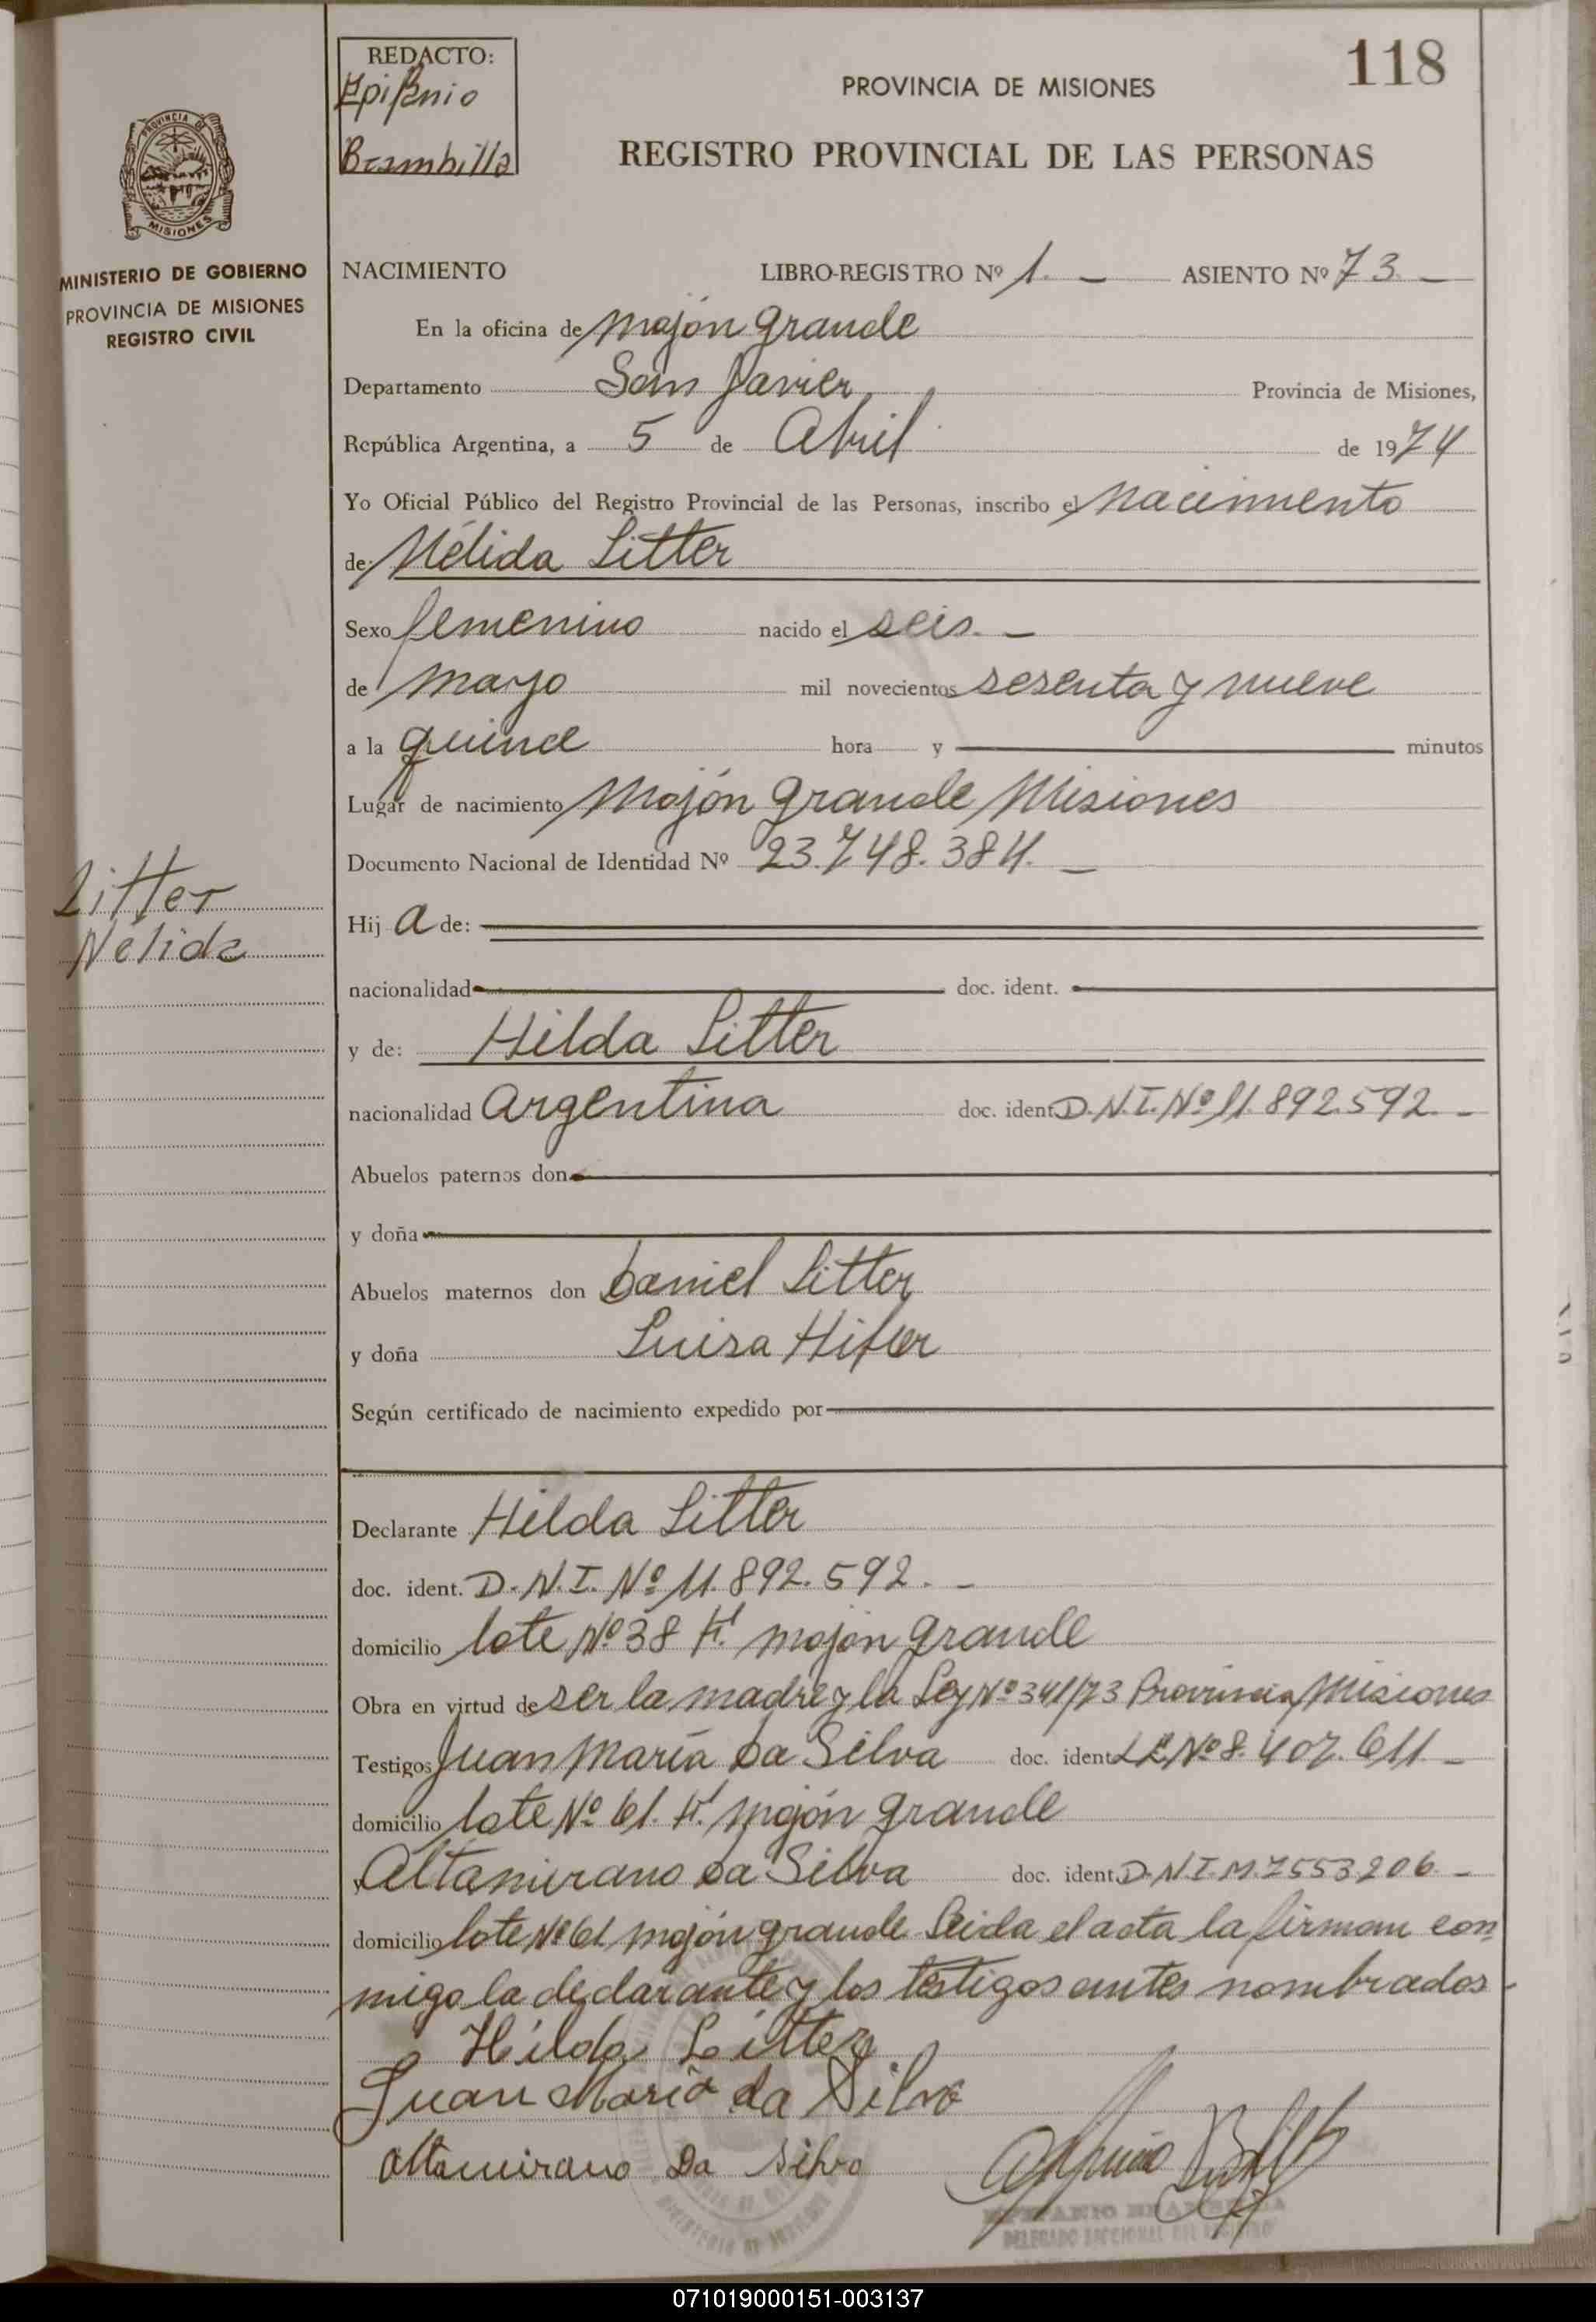 118
REDACTO:
Epifanio
Brambilla
PROVINCIA DE MISIONES
REGISTRO PROVINCIAL DE LAS PERSONAS
PROVINCIA DE
MISIONES
MINISTERIO DE GOBIERNO
PROVINCIA DE MISIONES
REGISTRO CIVIL
NACIMIENTO LIBRO-REGISTRO Nº 1. - ASIENTO Nº 73 -
En la oficina de Mojón grande
Departamento San Javier Provincia de Misiones,
República Argentina, a 5 de Abril de 1974
Yo Oficial Público del Registro Provincial de las Personas, inscribo el Nacimiento
de: Nélida Litter
Sexo femenino nacido el seis. -
de mayo mil novecientos sesenta y nueve
a la quince hora y minutos
Lugar de nacimiento Mojón grande Misiones
Documento Nacional de Identidad Nº 23.748.384. -
Litter
Nélida
Hij a de:
nacionalidad doc. ident.
y de: Hilda Litter
nacionalidad argentina doc. ident. D.N.I. Nº 11.892.592. -
Abuelos paternos don
y doña
Abuelos maternos don Daniel Litter
y doña Luisa
Según certificado de nacimiento expedido por
Declarante Hilda Litter
doc. ident. D.N.I. Nº 11.892.592. -
domicilio lote Nº 38 mojón grande
Obra en virtud de ser la madre y la Ley Nº 341/73 Provincia Misiones
Testigos Juan María Da Silva doc. ident. L.E. Nº 8.407.611 -
domicilio lote Nº 61. mojón grande
y Altamirano Da Silva doc. ident. D.N.I. M. 7553206 -
domicilio lote Nº 61 mojón grande Leida el acta la firman con
migo la declarante y los testigos antes nombrados.
Hilda Litter
Juan Maria da Silva
Altamirano Da Silva
EPIFANIO BRAMBILLA
071019000151-003137